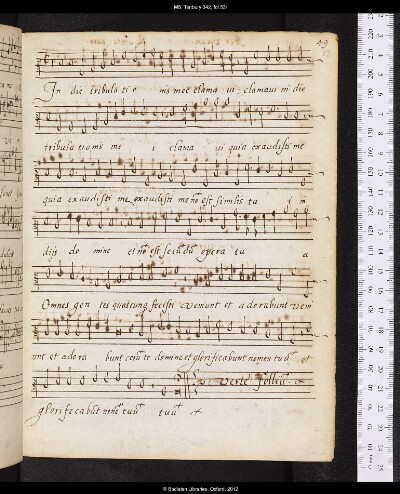 MS. Tenbury 342, fol.53r
49
53
In die tribulatio ms mee clama ui clamaui in die
tribulationis me i clama ui quia exaudisti me
quia exaudisti me exaudisti me nō est similis tu i in
dijs do mine et nō est secundū opera tu a
Omnes gen tes quascunq fecisti venient et adorabunt ven
unt et adora bunt corā te domine et glorificabunt nomen tuū et
glorificabūt nomē tuū tuū
verte folliū
© Bodleian Libraries, Oxford, 2012